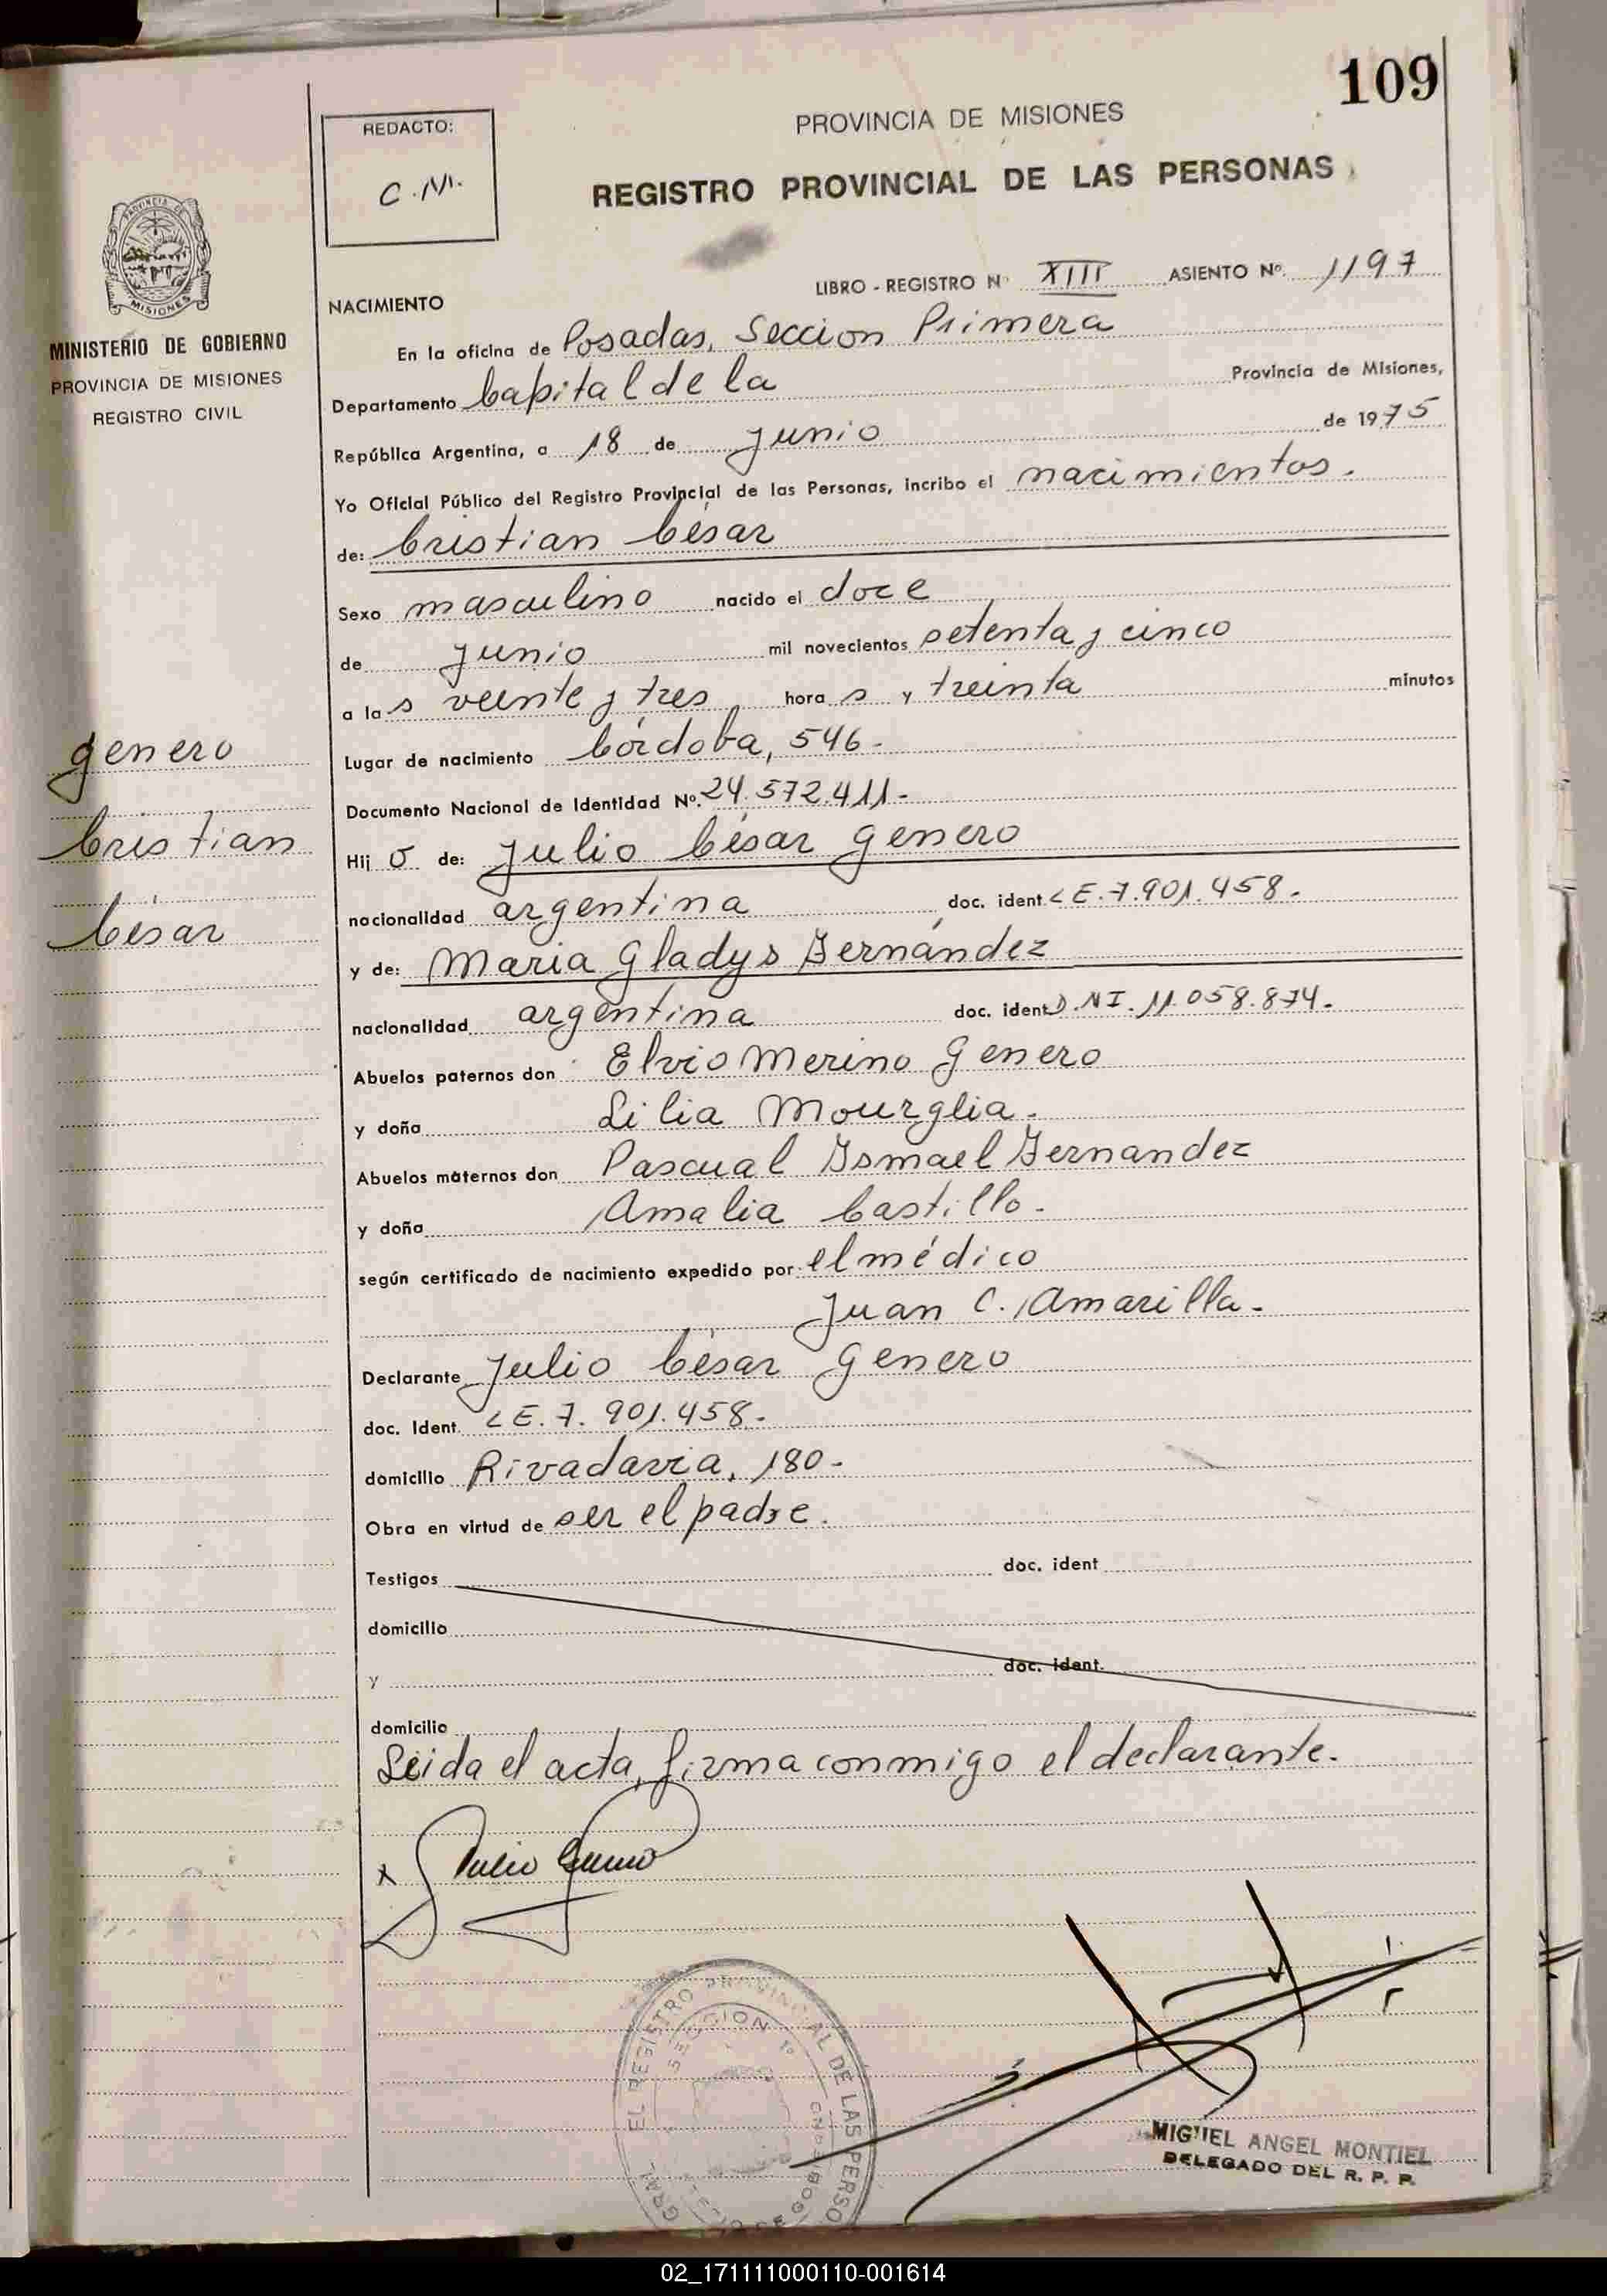 109
REDACTO:
C.M.
PROVINCIA DE MISIONES
REGISTRO PROVINCIAL DE LAS PERSONAS
PROVINCIA DE
MISIONES
MINISTERIO DE GOBIERNO
PROVINCIA DE MISIONES
REGISTRO CIVIL
LIBRO - REGISTRO Nº XIII ASIENTO Nº 1197
NACIMIENTO
En la oficina de Posadas, Seccion Primera
Departamento Capital de la Provincia de Misiones,
República Argentina, a 18 de Junio de 1975
Yo Oficial Público del Registro Provincial de las Personas, incribo el nacimientos.
de: Cristian César
Sexo masculino nacido el doce
de Junio mil novecientos setenta y cinco
a las veinte y tres hora s y treinta minutos
Lugar de nacimiento Córdoba, 546.-
Documento Nacional de Identidad Nº 24.572.411-
Hij o de: Julio César Genero
nacionalidad argentina doc. ident LE.7.901.458.
y de: Maria Gladys Fernández
nacionalidad argentina doc. ident D.NI. 11.058.874.
Abuelos paternos don Elvio Merino Genero
y doña Lilia Mourglia.
Abuelos maternos don Pascual Ismael Fernandez
y doña Amalia Castillo.
según certificado de nacimiento expedido por el médico
Juan C. Amarilla.
Declarante Julio César Genero
doc. Ident. LE. 7. 901.458.
domicilio Rivadavia, 180-
Obra en virtud de ser el padre.
Testigos doc. ident
domicilio
y doc. ident.
domicilio
Leida el acta, firma conmigo el declarante.
Genero
Cristian
César
x Julio Genero
EL REGISTRO PROVINCIAL DE LAS PERSO
SECCION 1ª
MIGUEL ANGEL MONTIEL
DELEGADO DEL R. P. P.
02_171111000110-001614